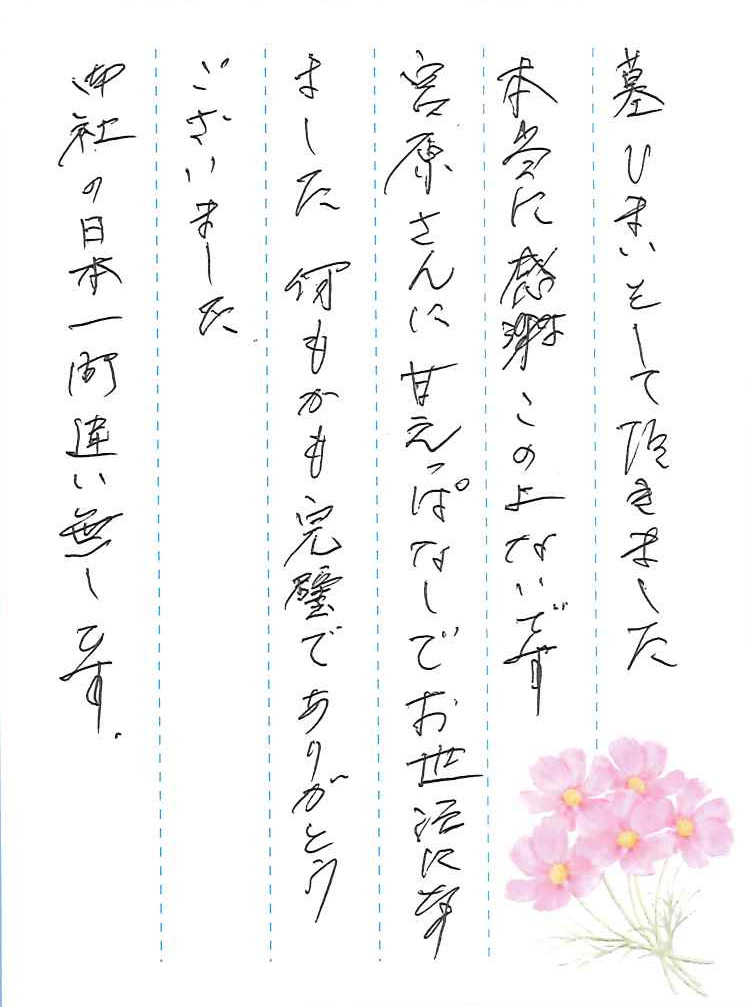 墓じまいをして頂きました
本当に感謝このよないです
宮原さんに甘えっぱなしでお世話になり
ました 何もかも完璧でありがとう
ございました
御社の日本一間違い無しです.